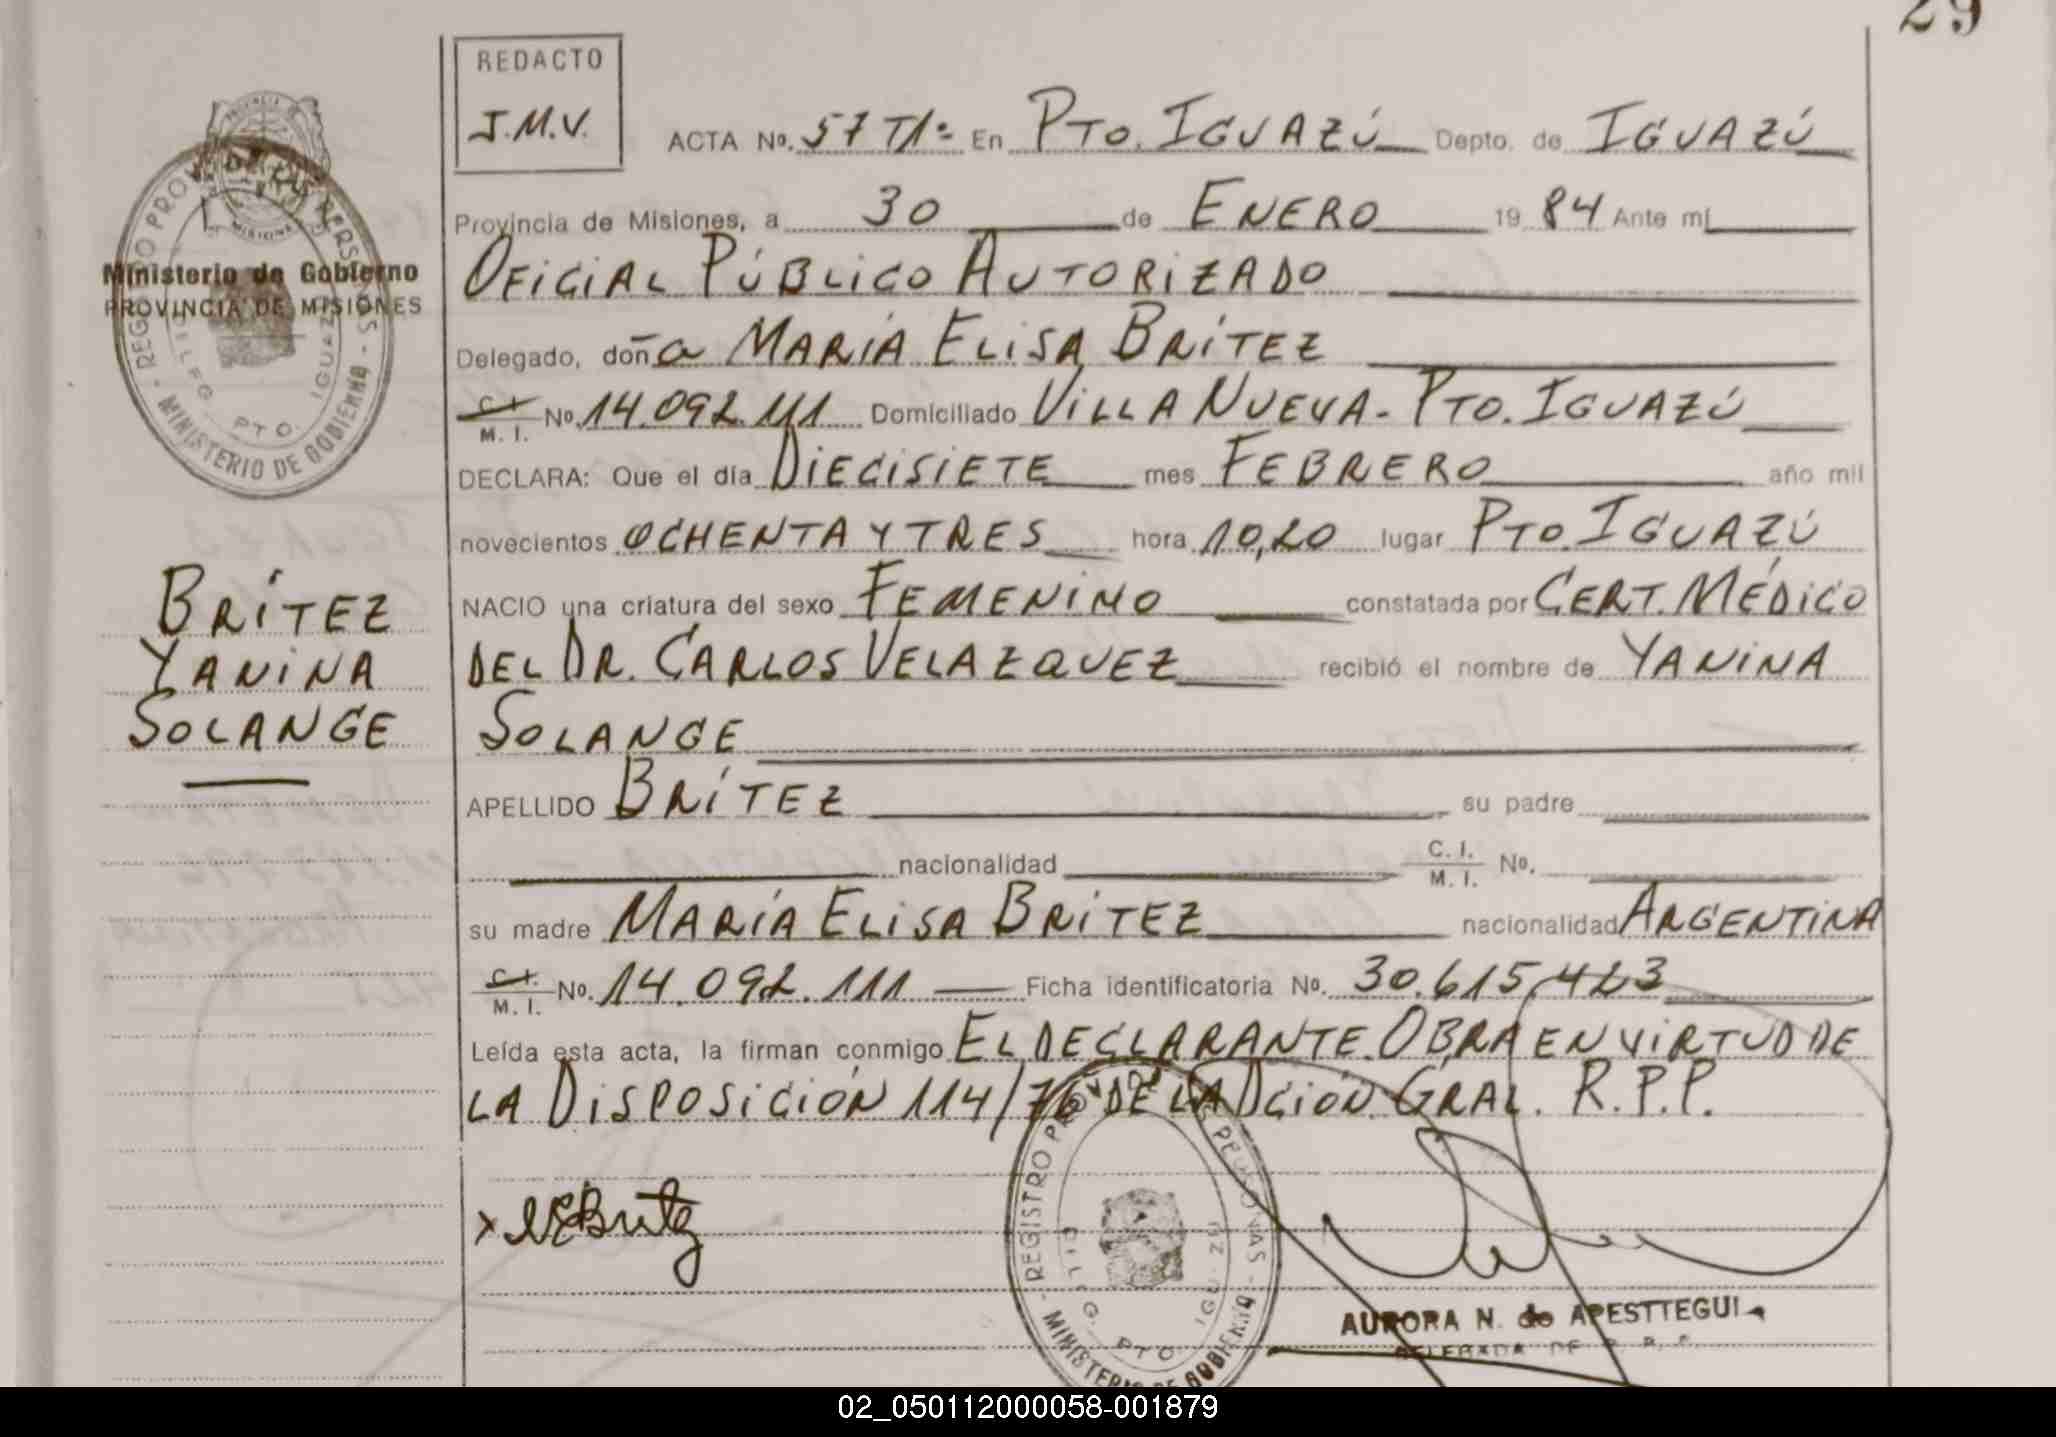 29
REDACTO
J.M.V.
ACTA No. 57 T1º En PTO. IGUAZÚ Depto. de IGUAZÚ
Provincia de Misiones, a 30 de ENERO 19 84 Ante mí
OFICIAL PÚBLICO AUTORIZADO
Delegado, doña MARÍA ELISA BRÍTEZ
C. I. / M. I. No. 14.092.111 Domiciliado VILLA NUEVA - PTO. IGUAZÚ
DECLARA: Que el día DIECISIETE mes FEBRERO año mil
novecientos OCHENTA Y TRES hora 10,20 lugar PTO. IGUAZÚ
NACIO una criatura del sexo FEMENINO constatada por CERT. MÉDICO
DEL DR. CARLOS VELAZQUEZ recibió el nombre de YANINA
SOLANGE
APELLIDO BRÍTEZ su padre
nacionalidad C. I. / M. I. No.
su madre MARÍA ELISA BRÍTEZ nacionalidad ARGENTINA
C. I. / M. I. No. 14.092.111 Ficha identificatoria No. 30.615.423
Leída esta acta, la firman conmigo EL DECLARANTE. OBRA EN VIRTUD DE
LA DISPOSICIÓN 114/76 DE LA DCIÓN. GRAL. R.P.P.
x MEBritez
AURORA N. de APESTTEGUI
DELEGADA DE R. P. P.
REGISTRO PROV. DE LAS PERSONAS - MINISTERIO DE GOBIERNO
DELEG. PTO. IGUAZU
Ministerio de Gobierno
PROVINCIA DE MISIONES
REGISTRO PROV. DE LAS PERSONAS - MINISTERIO DE GOBIERNO
DELEG. PTO. IGUAZU
BRÍTEZ
YANINA
SOLANGE
02_050112000058-001879